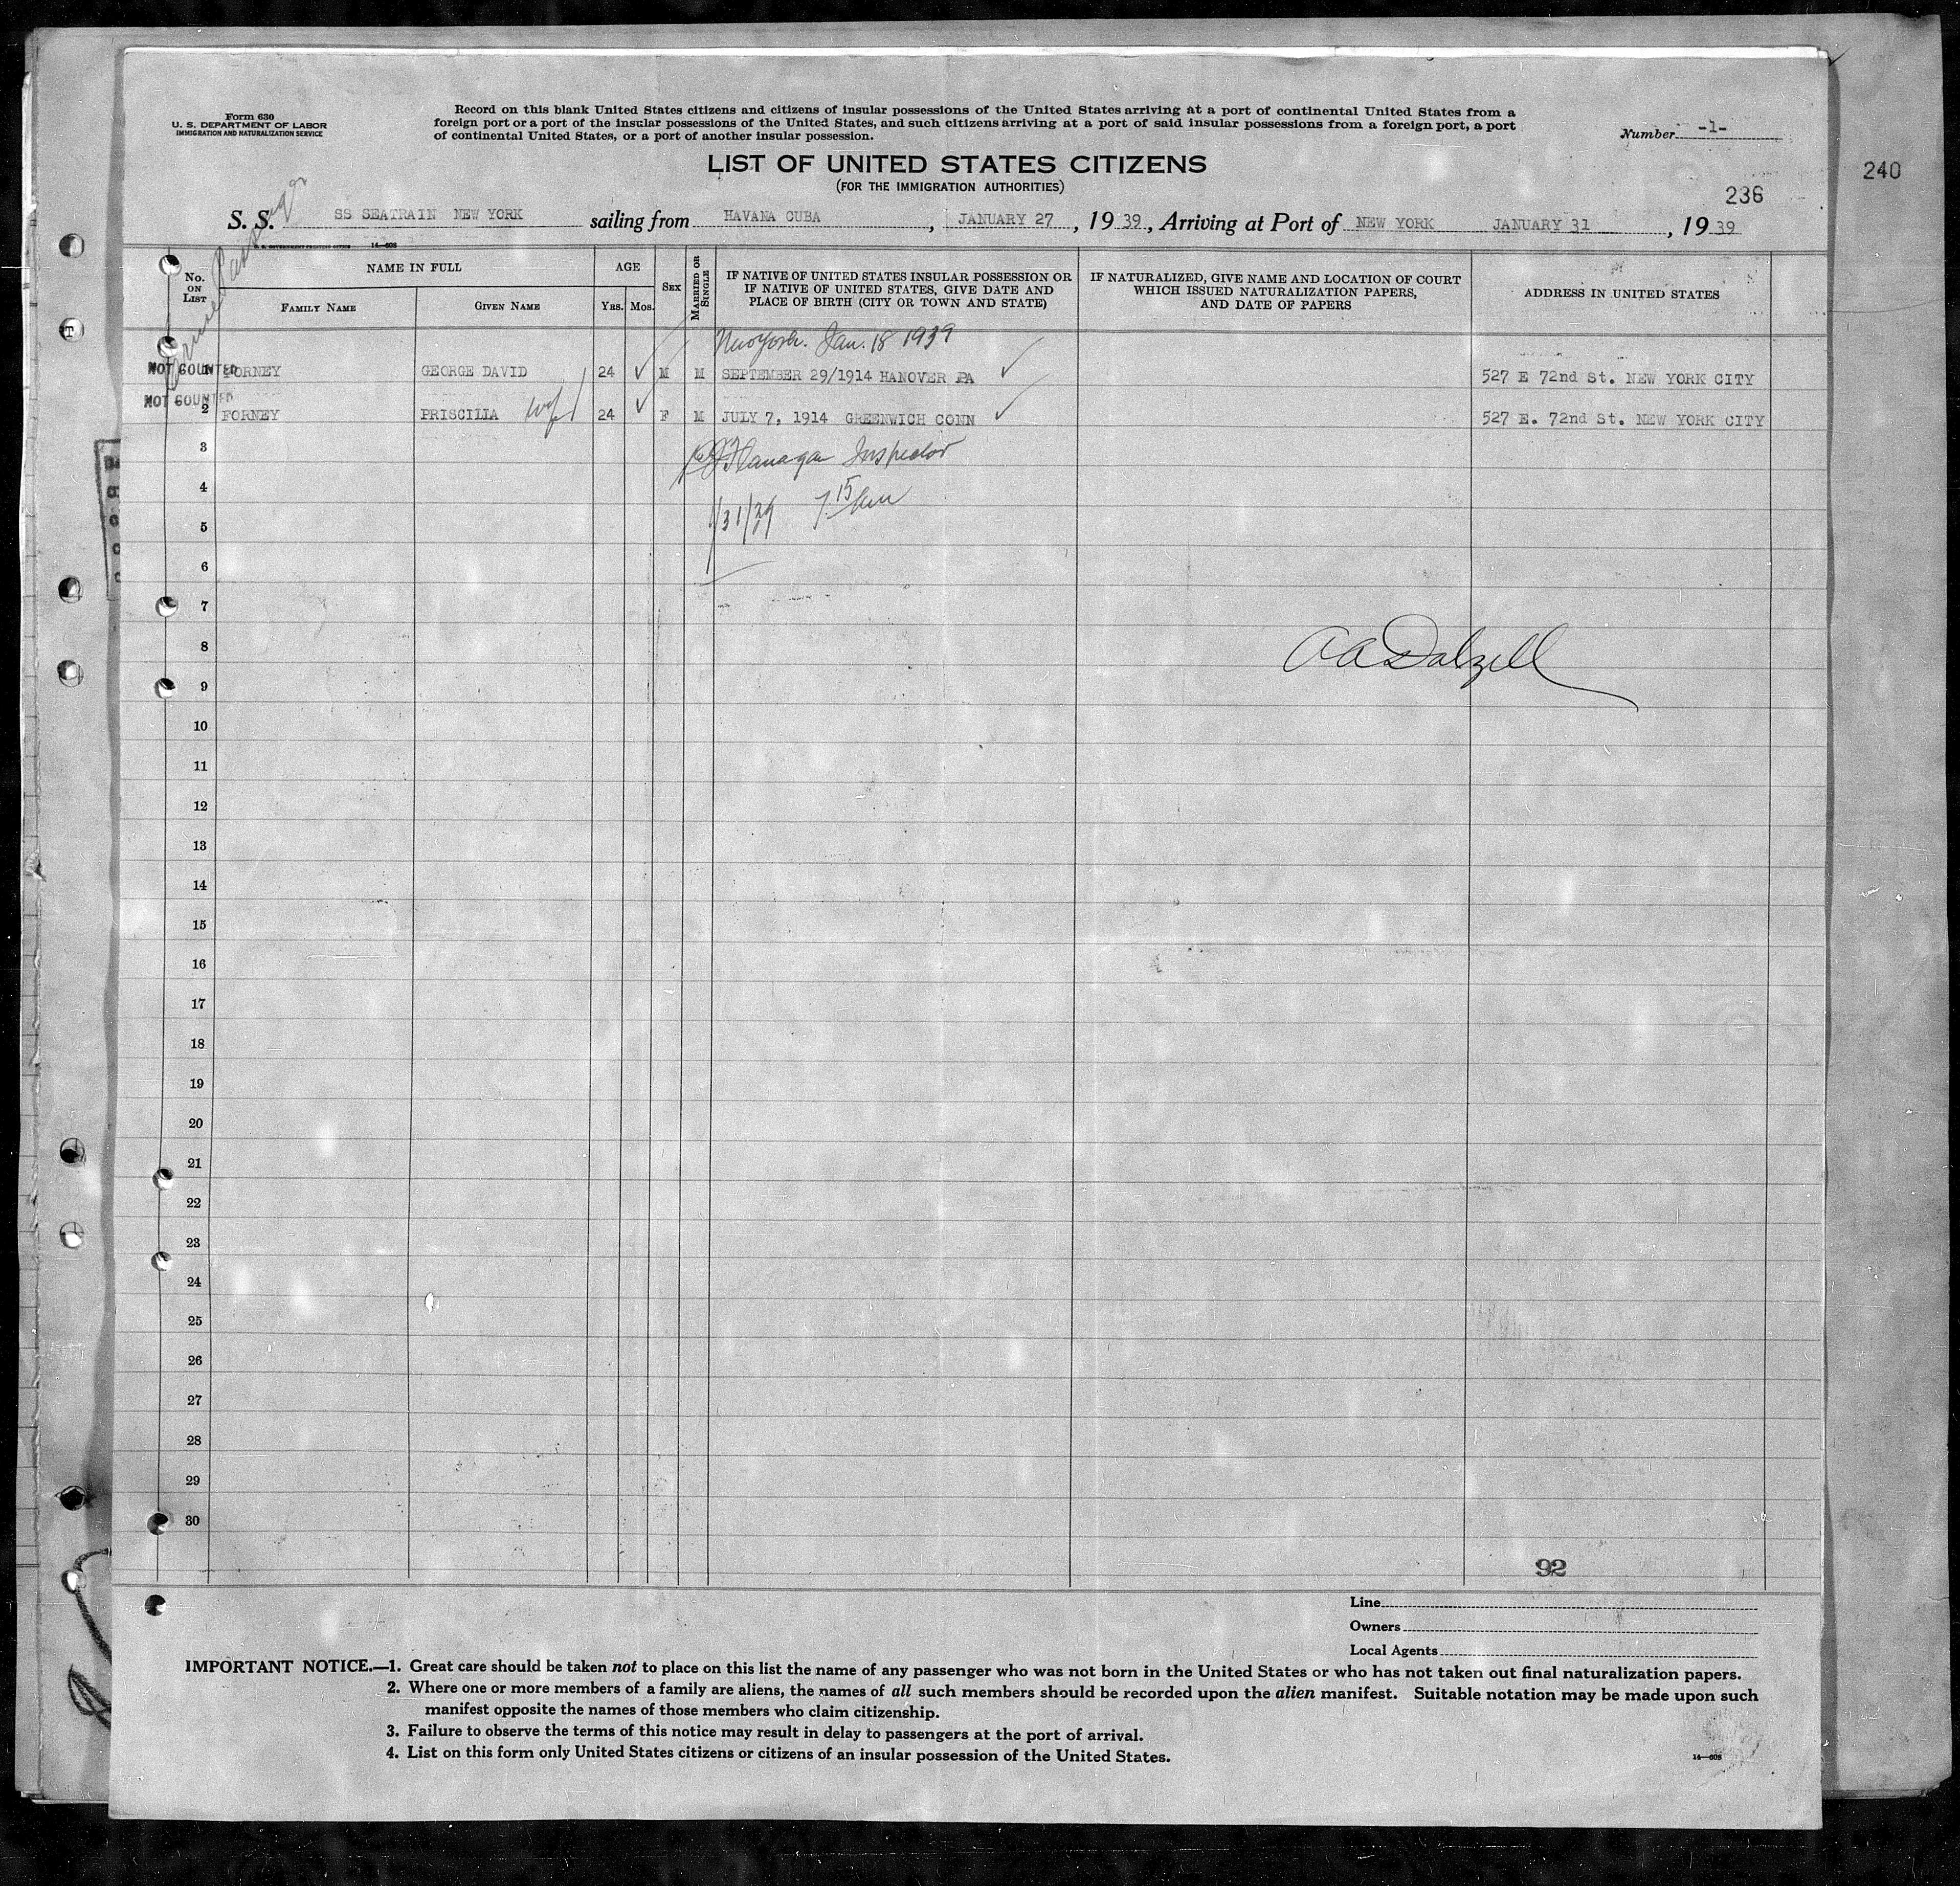 Form 630
U. S. DEPARTMENT OF LABOR
IMMIGRATION AND NATURALIZATION SERVICE
Record on this blank United States citizens and citizens of insular possessions of the United States arriving at a port of continental United States from a
foreign port or a port of the insular possessions of the United States, and such citizens arriving at a port of said insular possessions from a foreign port, a port
of continental United States, or a port of another insular possession.
Number -1-
LIST OF UNITED STATES CITIZENS
(FOR THE IMMIGRATION AUTHORITIES)
240
236
S. S. SS SEATRAIN NEW YORK sailing from HAVANA CUBA, JANUARY 27, 1939, Arriving at Port of NEW YORK JANUARY 31, 1939
U. S. GOVERNMENT PRINTING OFFICE 14—608
No. ON LIST
NAME IN FULL
FAMILY NAME
GIVEN NAME
AGE
Yrs.
Mos.
SEX
MARRIED OR SINGLE
IF NATIVE OF UNITED STATES INSULAR POSSESSION OR
IF NATIVE OF UNITED STATES, GIVE DATE AND
PLACE OF BIRTH (CITY OR TOWN AND STATE)
IF NATURALIZED, GIVE NAME AND LOCATION OF COURT
WHICH ISSUED NATURALIZATION PAPERS,
AND DATE OF PAPERS
ADDRESS IN UNITED STATES
New York. Jan. 18 1939
NOT COUNTED 1 FORNEY GEORGE DAVID 24 ✓ M M SEPTEMBER 29/1914 HANOVER PA ✓ 527 E 72nd St. NEW YORK CITY
NOT COUNTED 2 FORNEY PRISCILIA wife 24 ✓ F M JULY 7, 1914 GREENWICH CONN ✓ 527 E. 72nd St. NEW YORK CITY
3 Flanagan Inspector
4
5 1/31/39 7.15
6
7
8 A A Dalzell
9
10
11
12
13
14
15
16
17
18
19
20
21
22
23
24
25
26
27
28
29
30
92
Line
Owners
Local Agents
IMPORTANT NOTICE.—1. Great care should be taken not to place on this list the name of any passenger who was not born in the United States or who has not taken out final naturalization papers.
2. Where one or more members of a family are aliens, the names of all such members should be recorded upon the alien manifest. Suitable notation may be made upon such
manifest opposite the names of those members who claim citizenship.
3. Failure to observe the terms of this notice may result in delay to passengers at the port of arrival.
4. List on this form only United States citizens or citizens of an insular possession of the United States.
14—608